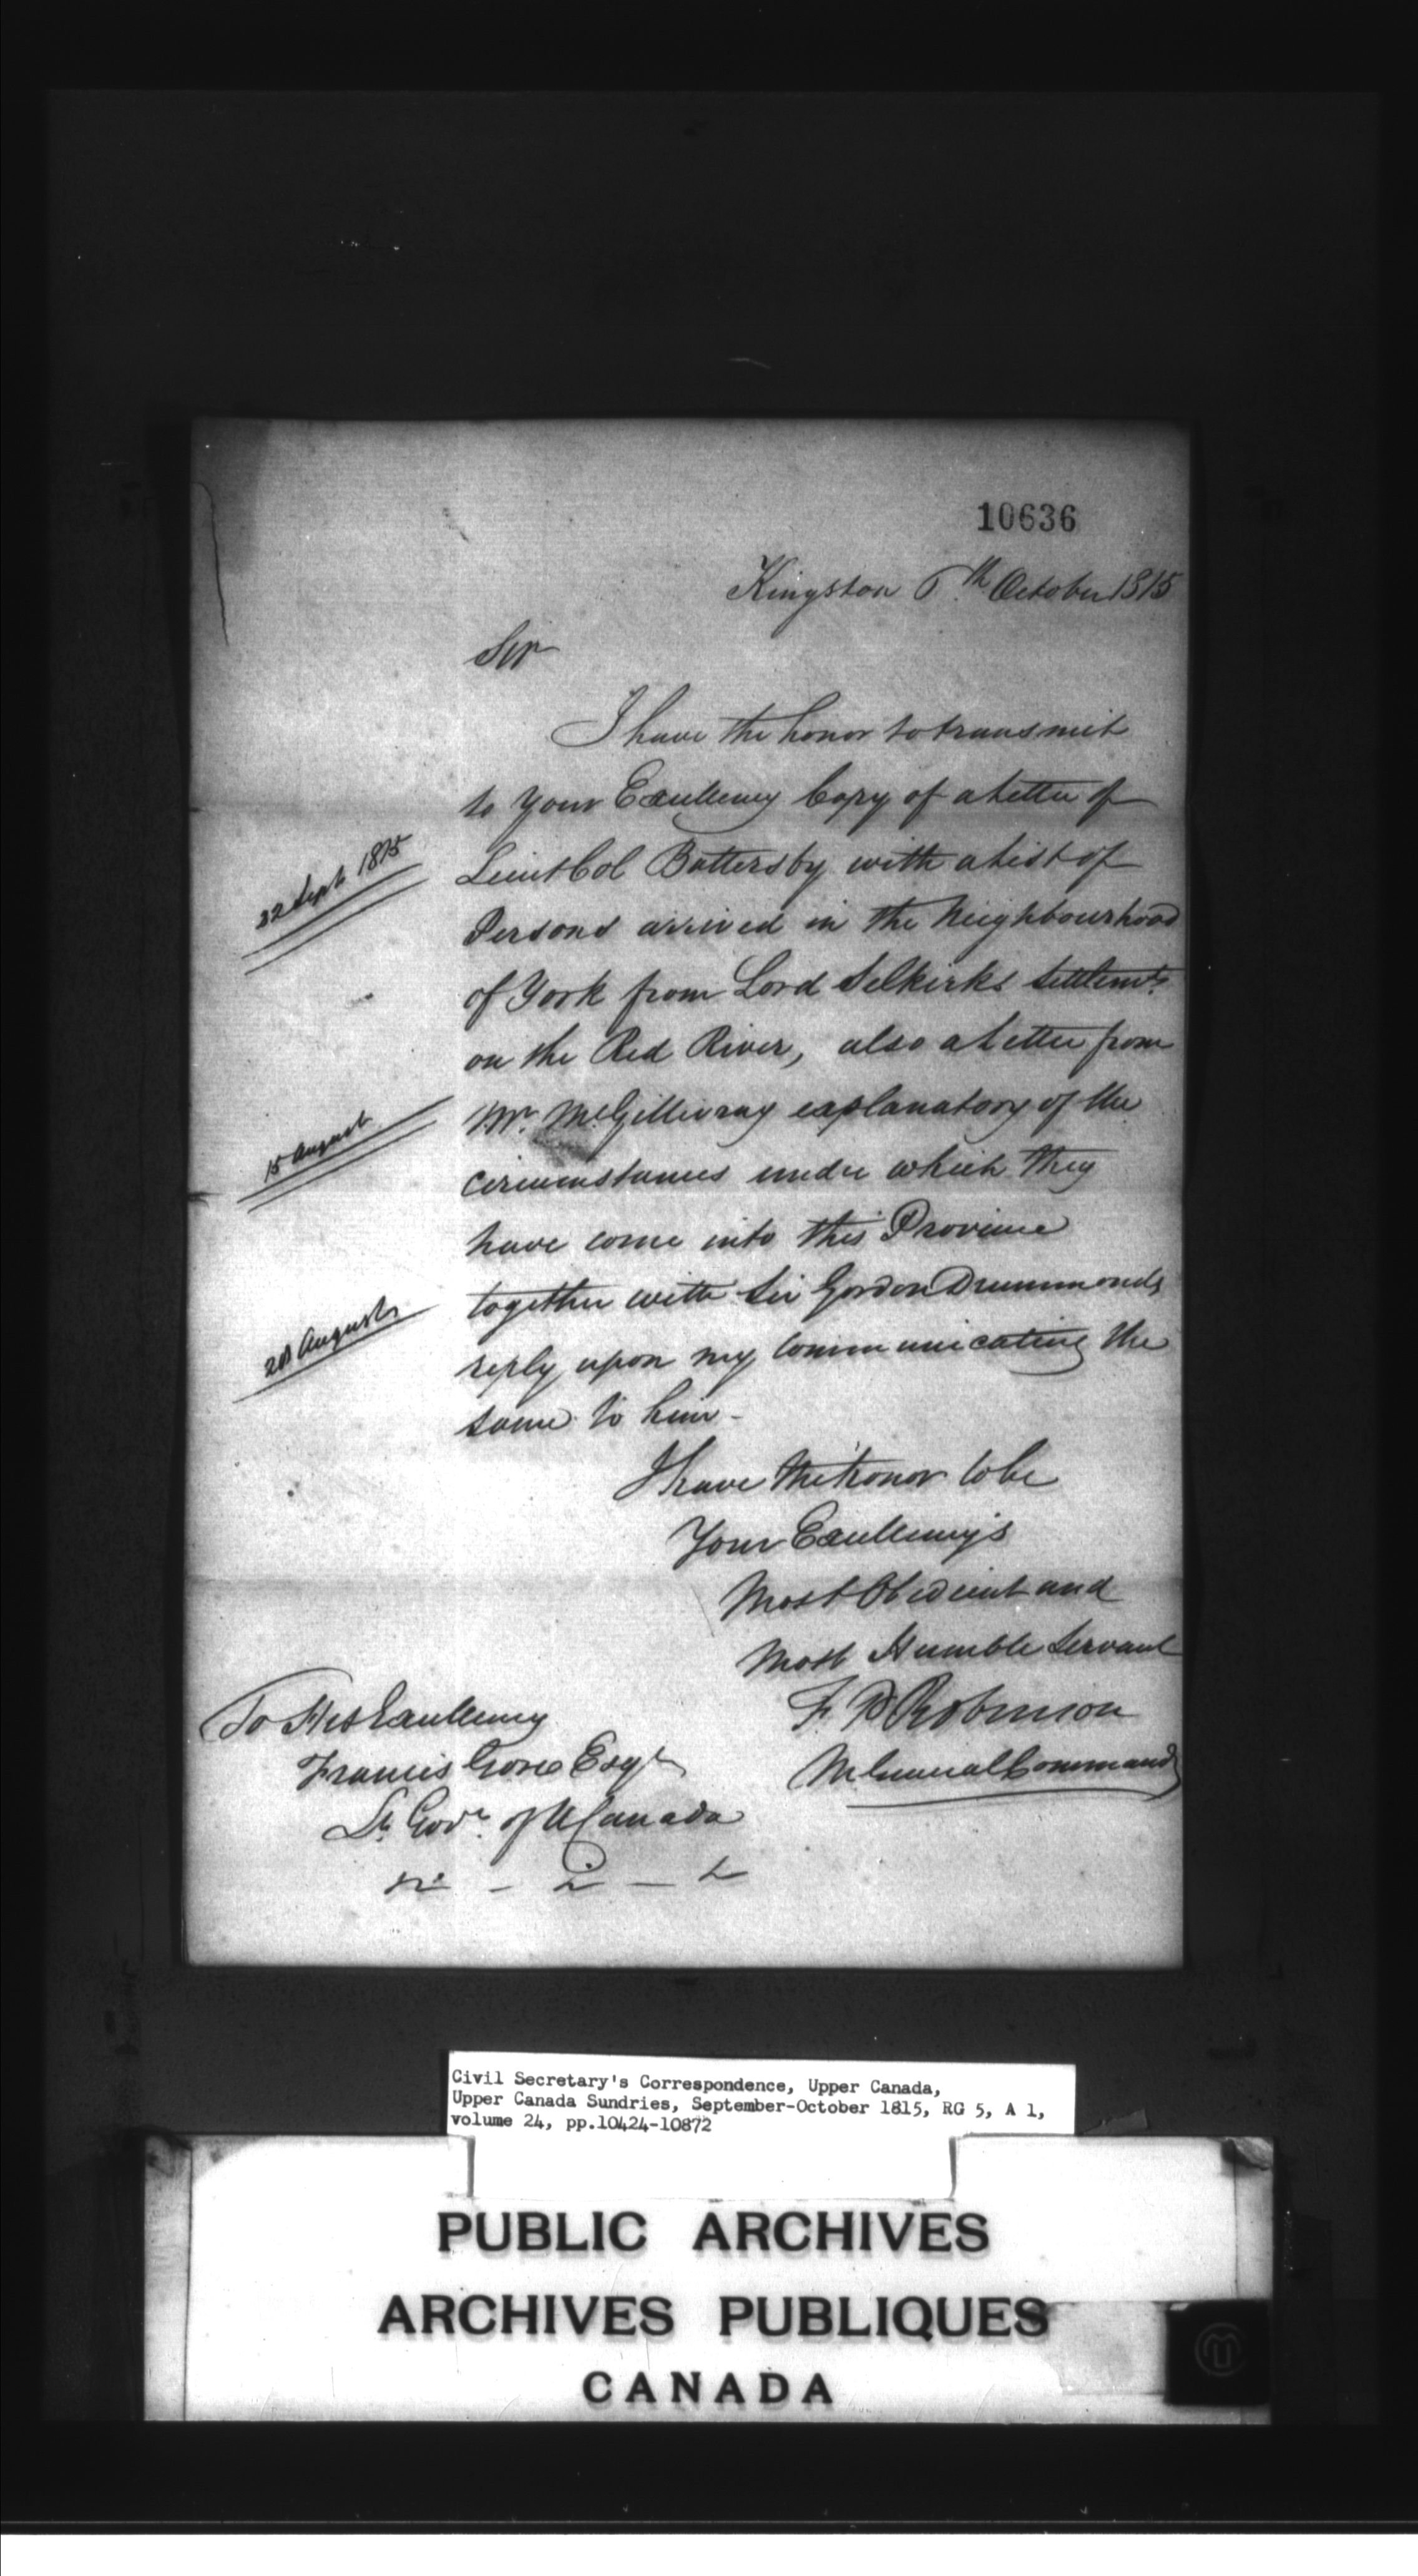 10636
Kingston 6th October 1815
Sir
I have the honor to transmit
to Your Excellency Copy of a Letter of
22 Sept 1815
Lieut Col Battersby with a List of
Persons arrived in the Neighbourhood
of York from Lord Selkirks Settlemts.
on the Red River, also a Letter from
15 August
Mr. McGillivray explanatory of the
circumstances under which they
have come into this Province
together with Sir Gordon Drummonds
August
reply upon my communicating the
same to him -
I have the honor to be
Your Excellency's
Most Obedient and
Most Humble Servant
F. P. Robinson
M General Commandg
To His Excellency
Francis Gore Esqr
Lt. Govr. of U Canada
Civil Secretary's Correspondence, Upper Canada,
Upper Canada Sundries, September-October 1815, RG 5, A 1,
volume 24, pp.10424-10872
PUBLIC ARCHIVES
ARCHIVES PUBLIQUES
CANADA